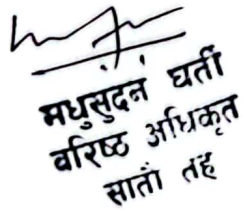 मधुसुदन घर्ती
वरिष्ठ अधिकृत
सातौं तह